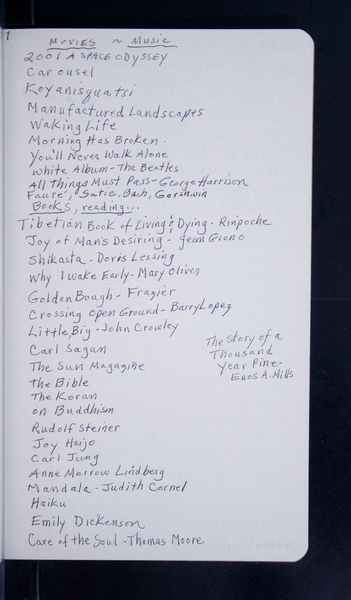 1
MOVIES ~ Music
2001 A SPACE ODYSSEY
Carousel
Koyanisquatsi
Manufactured Landscapes
Waking Life
Morning Has Broken.
You'll Never Walk Alone
White Album - The Beatles
All Things Must Pass - George Harrison
Faure', Satie, Bach, Gershwin
Books, reading...
Tibetian Book of Living & Dying - Rinpoche
Joy of Man's Desiring - Jean Giono
Shikasta - Doris Lessing
Why I Wake Early - Mary Oliver
Golden Bough - Frazier
Crossing Open Ground - Barry Lopez
Little, Big - John Crowley
Carl Sagan
The Sun Magazine
The Bible
The Koran
on Buddhism
Rudolf Steiner
Joy Harjo
Carl Jung
Anne Morrow Lindberg
Mandala - Judith Cornel
Haiku
Emily Dickenson
Care of the Soul - Thomas Moore
The Story of a
Thousand
Year Pine -
Enos A. Mills